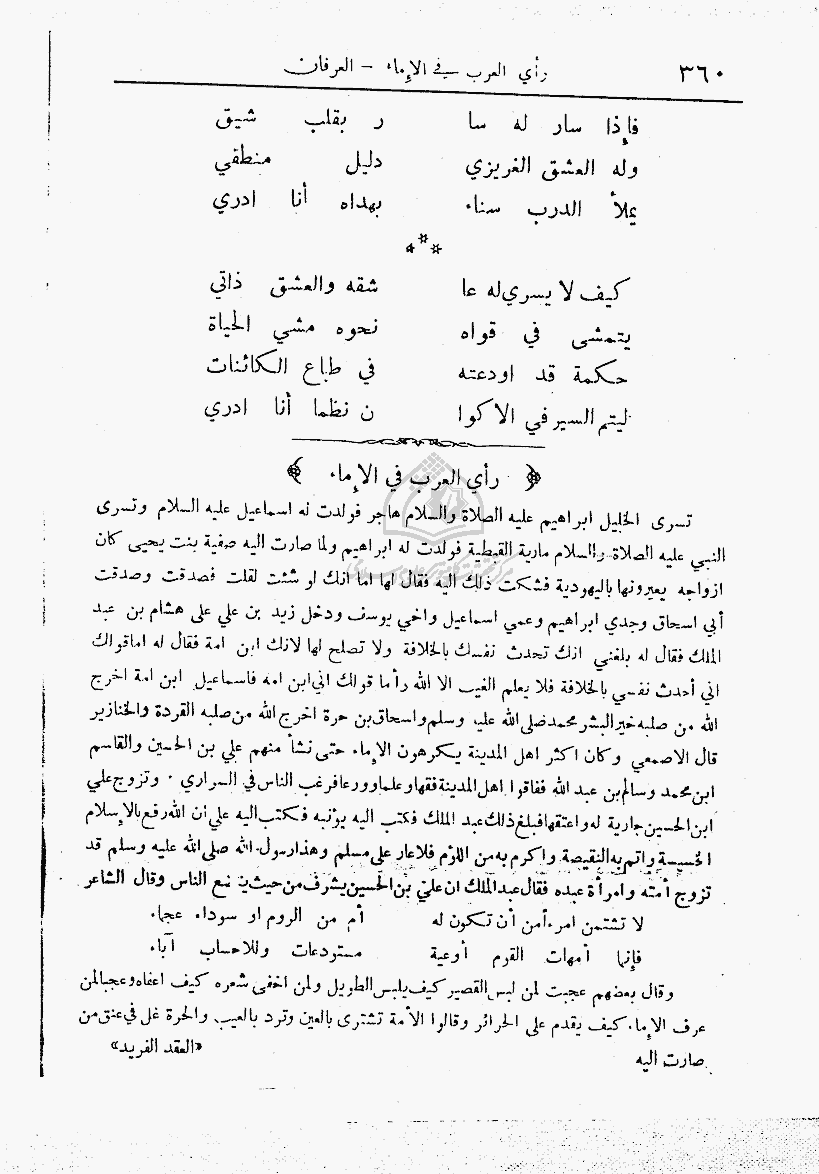 ٣٦٠
رأي العرب في الإماء – العرفان
فإذا سار له سا ر بقلب شيق
وله العشق الغريزي دليل منطقي
يملأ الدرب سناء بهداه أنا ادري
***
كيف لا يسري له عا شقه والعشق ذاتي
يتمشى في قواه نحوه مشي الحياة
حكمة قد اودعته في طباع الكائنات
ليتم السير في الاكوا ن نظما أنا ادري
﴿ رأي العرب في الإماء ﴾
تسرى الخليل ابراهيم عليه الصلاة والسلام هاجر فولدت له اسماعيل عليه السلام وتسرى
النبي عليه الصلاة والسلام مارية القبطية فولدت له ابراهيم ولما صارت اليه صفية بنت يحيى كان
ازواجه يعيرونها باليهودية فشكت ذلك اليه فقال لها اما انك لو شئت لقلت فصدقت وصدقت
أبي اسحاق وجدي ابراهيم وعمي اسماعيل واخي يوسف ودخل زيد بن علي على هشام بن عبد
الملك فقال له بلغني انك تحدث نفسك بالخلافة ولا تصلح لها لانك ابن امة فقال له اما قولك
اني أحدث نفسي بالخلافة فلا يعلم الغيب الا الله وأما قولك اني ابن امة فاسماعيل ابن امة اخرج
الله من صلبه خير البشر محمد صلى الله عليه وسلم واسحاق بن حرة اخرج الله من صلبه القردة والخنازير
قال الاصمعي وكان اكثر اهل المدينة يكرهون الإماء حتى نشأ منهم علي بن الحسين والقاسم
ابن محمد وسالم بن عبد الله ففاقوا اهل المدينة فقها وعلما وورعا فرغب الناس في السراري . وتزوج علي
ابن الحسين جارية له واعتقها فبلغ ذلك عبد الملك فكتب اليه يؤنبه فكتب اليه علي ان الله رفع بالإسلام
الخسيسة واتم به النقيصة واكرم به من اللؤم فلا عار على مسلم وهذا رسول الله صلى الله عليه وسلم قد
تزوج أمته وامرأة عبده فقال عبد الملك ان علي بن الحسين يشرف من حيث يتضع الناس وقال الشاعر
لا تشتمن امرءا من أن تكون له أم من الروم او سوداء عجماء
فإنما أمهات القوم أوعية مستودعات وللاحساب آباء
وقال بعضهم عجبت لمن لبس القصير كيف يلبس الطويل ولمن اخفى شعره كيف اعفاه وعجبا لمن
عرف الإماء كيف يقدم على الحرائر وقالوا الأمة تشترى بالعين وترد بالعيب والحرة غل في عنق من
صارت اليه «العقد الفريد»